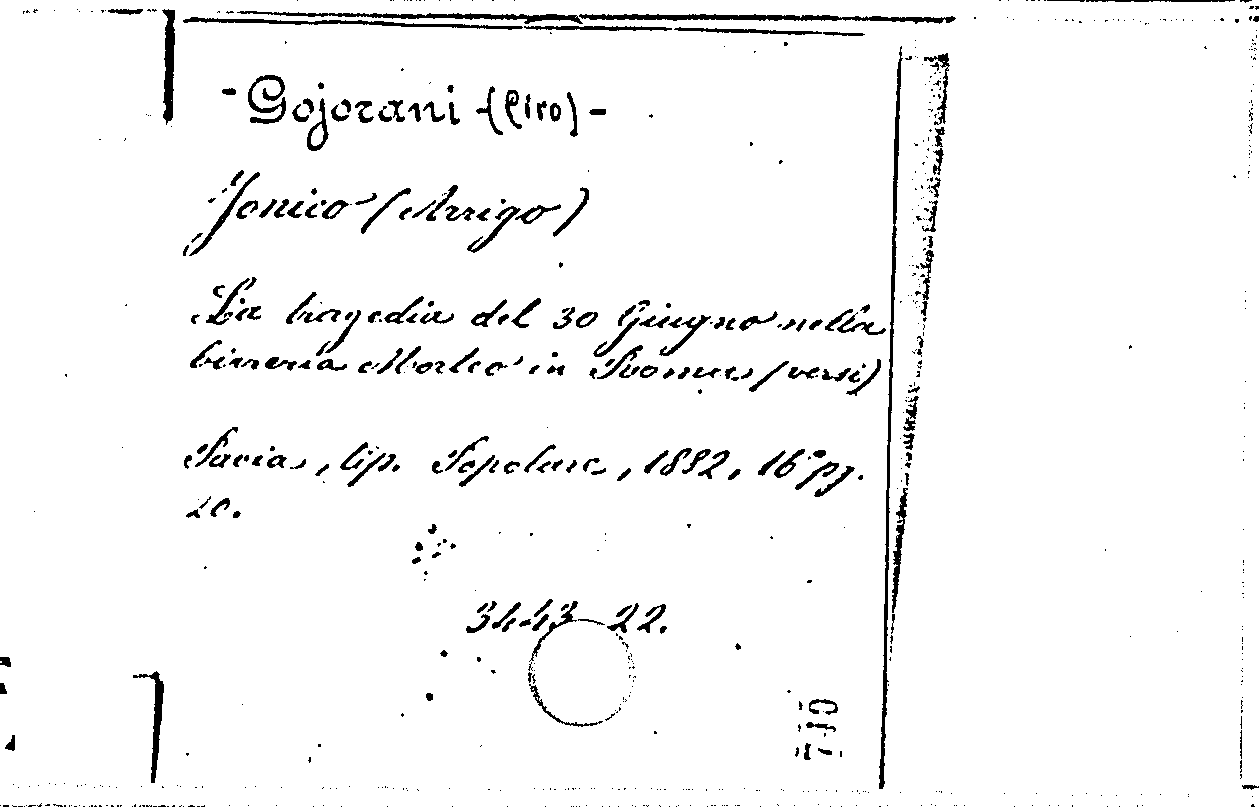 - Gojorani - (Ciro) -
Jonico (Arrigo)
La tragedia del 30 Giugno nella
birreria Morteo in Roma (versi)
Pavia, tip. Popolare, 1892, 16° pg.
20.
3443 22.